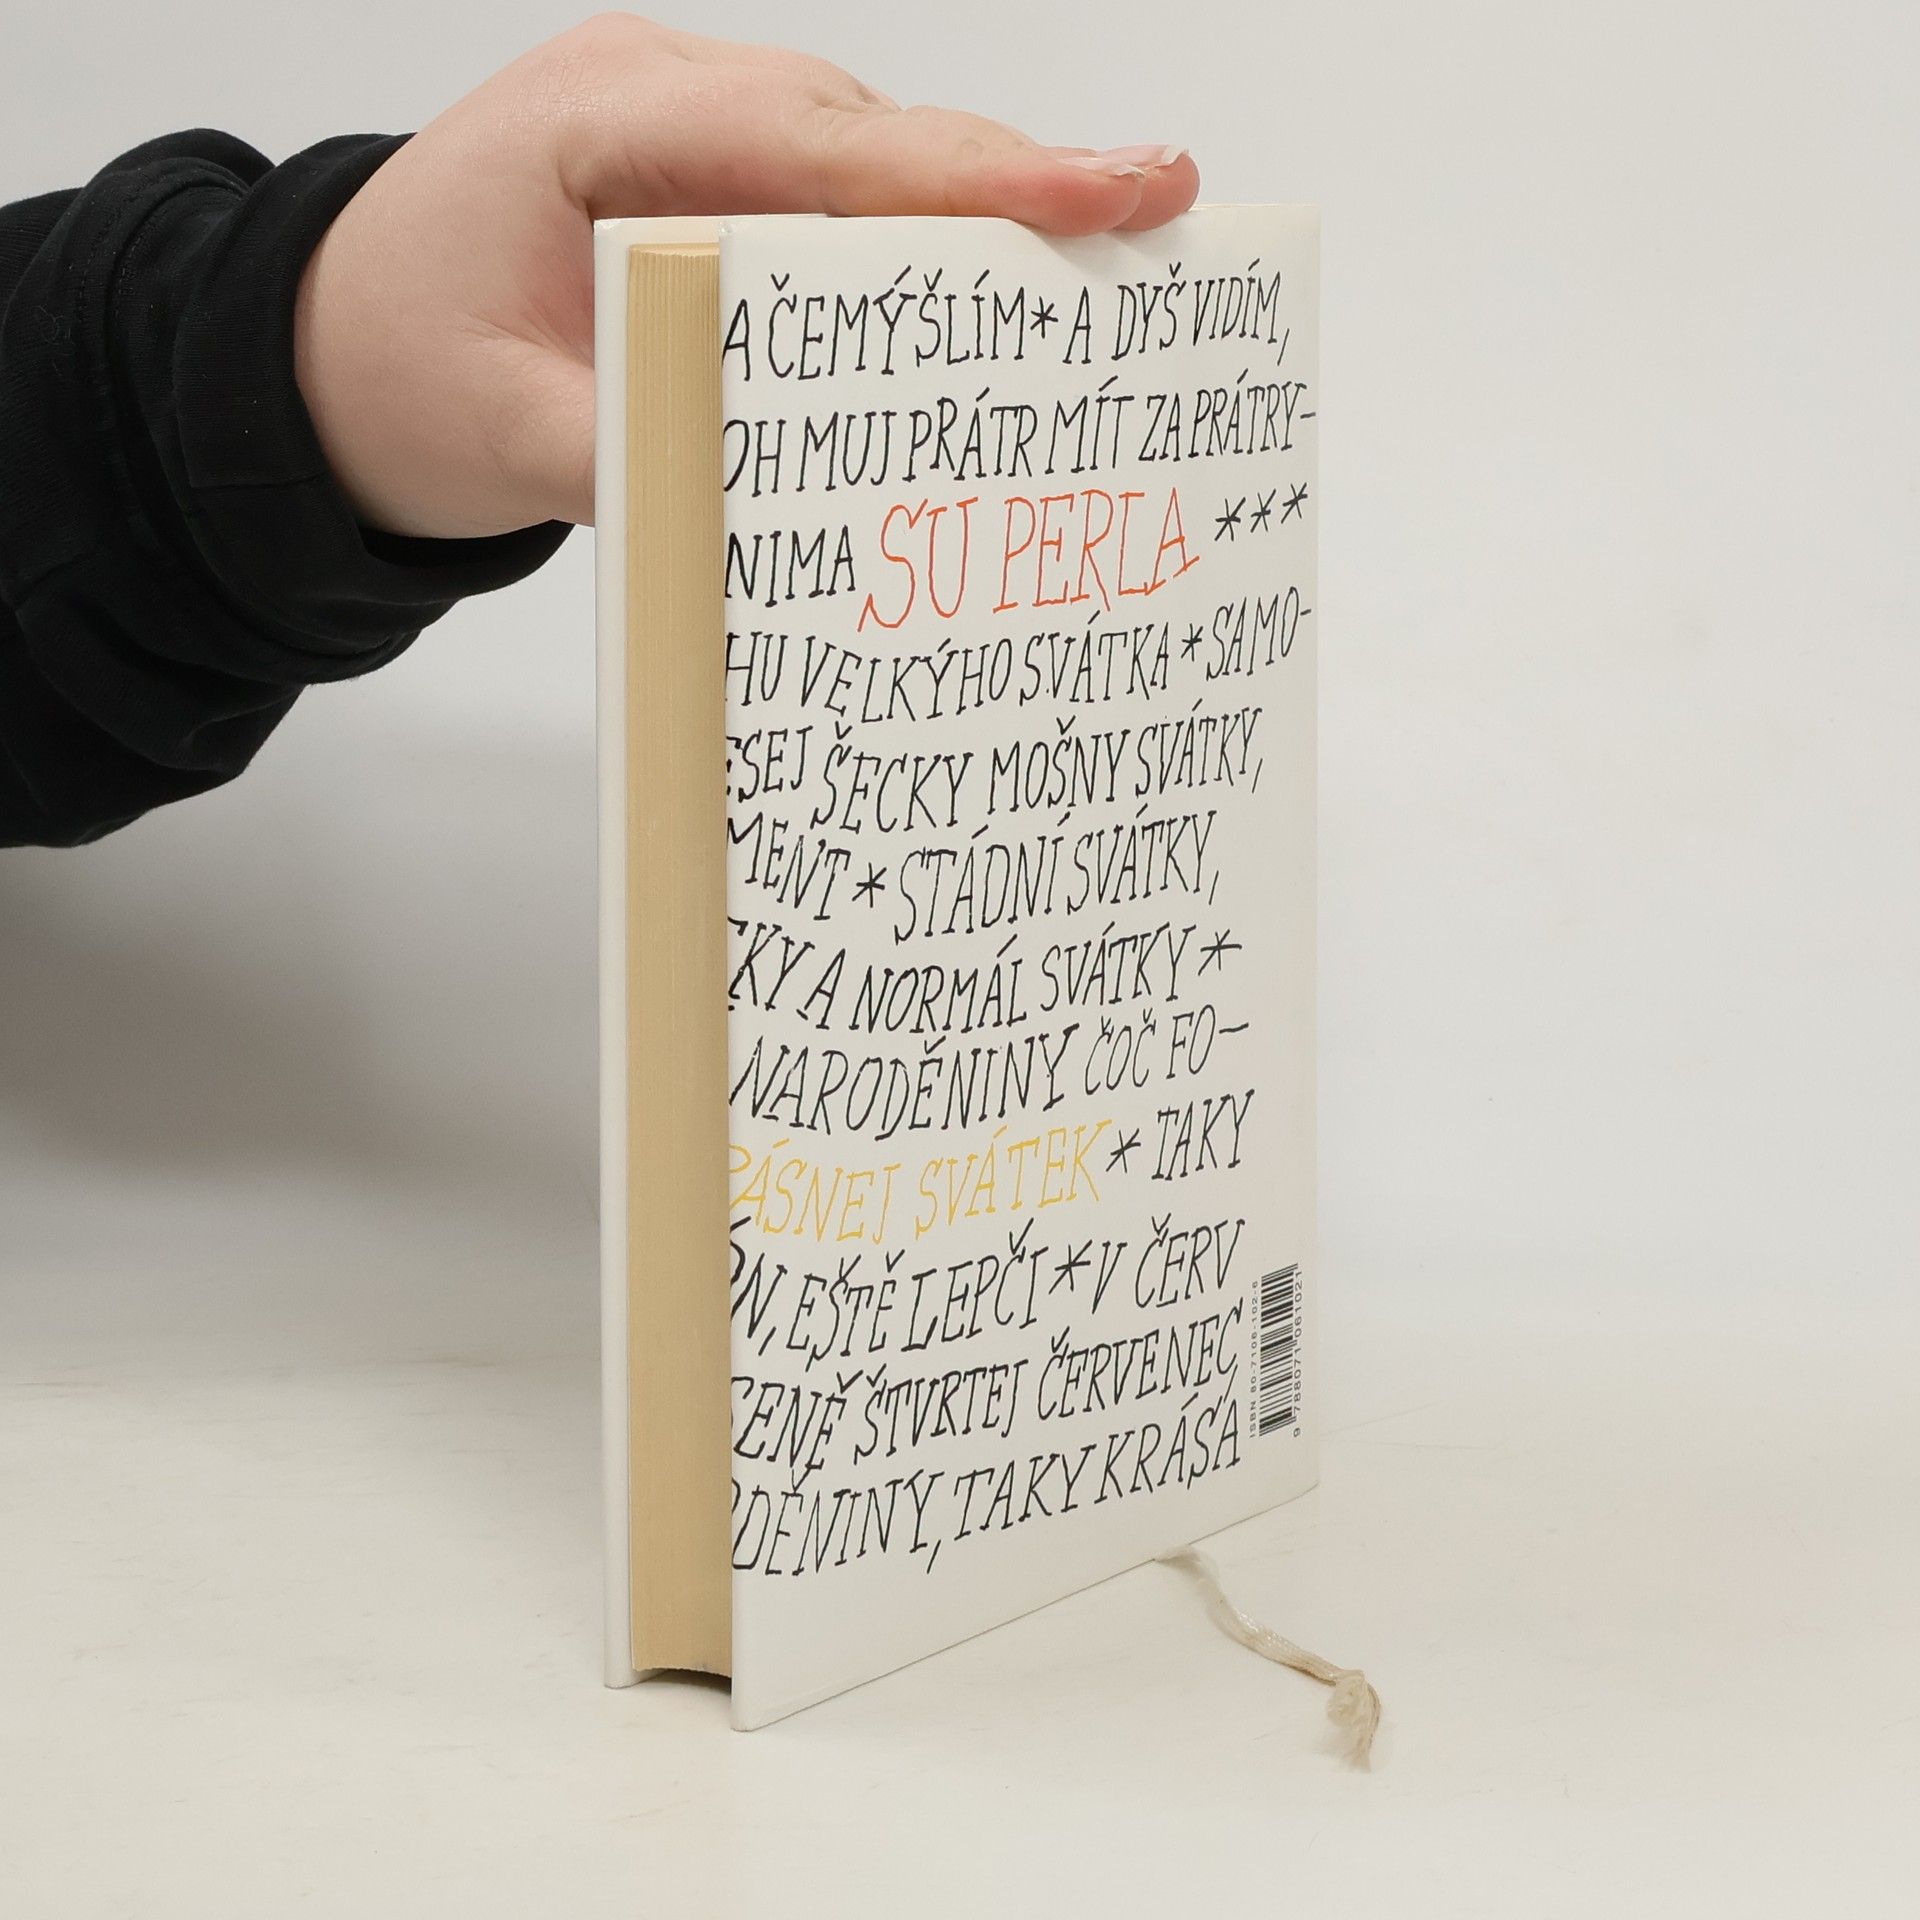 A ČEMÝŠLÍM * A DYŠ VIDÍM,
OH MUJ PRÁTR MÍT ZA PRÁTRY-
NIMA SU PERLA ***
HU VELKÝHO SVÁTKA * SAMO-
ESEJ ŠECKY MOŠNY SVÁTKY,
MENT * STÁDNÍ SVÁTKY,
KY A NORMÁL SVÁTKY *
NARODĚNINY ČOČ FO-
ÁSNEJ SVÁTEK * TAKY
N, EŠTĚ LEPČI * V ČERV
ENĚ ŠTVRTEJ ČERVENEC
DĚNINY, TAKY KRÁSA
ISBN 80-7106-102-6
9 788071 061021